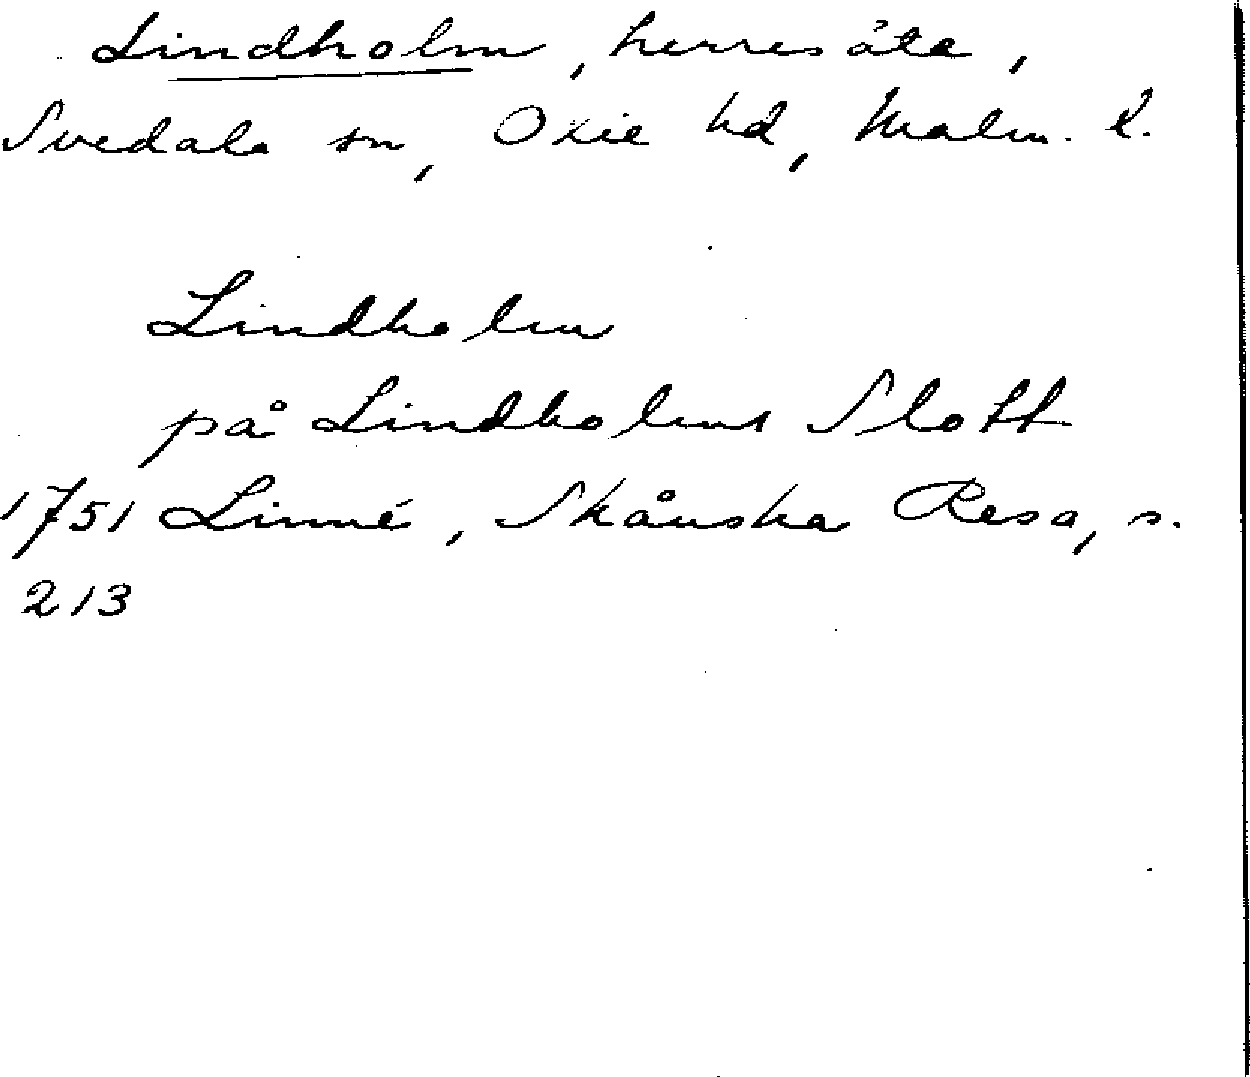 Lindholm, herresäte,
Svedala sn, Oxie hd, Malm. l.
Lindholm
på Lindholms Slott
1751 Linné, Skånska Resa, s.
213